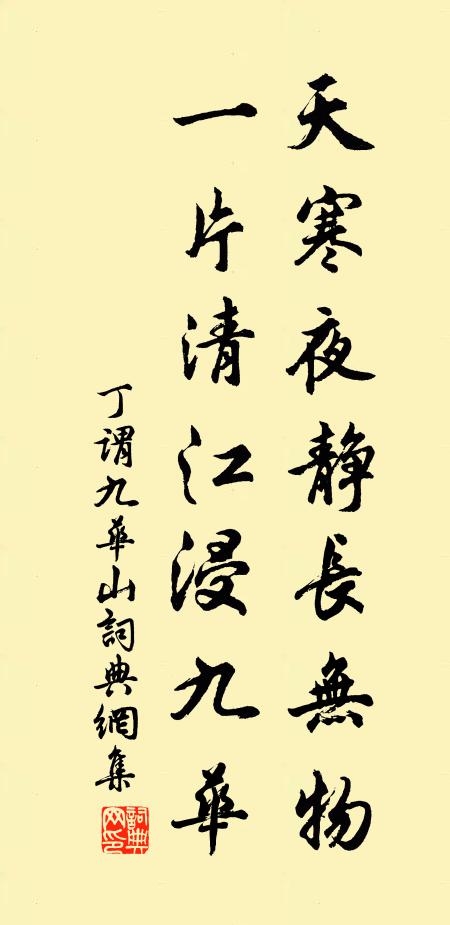 天寒夜静長無物
一片清江浸九華
丁謂九華山詞典網集
詞典网印